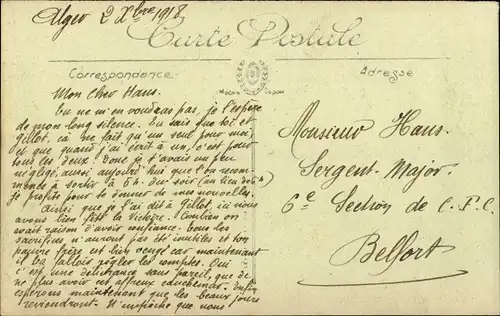 Alger 2 Xbre 1918
Carte Postale
Correspondance
Adresse
Mon Cher Hans.
tu ne m'en voudras pas, je l'espère
de mon long silence. Tu sais que toi et
Gillot, ca ne fait qu'un seul pour moi,
et que quand j'ai écrit à un, c'est pour
tous les deux. Donc je t'avais un peu
négligé, aussi aujourd'hui que l'on recom-
mence à sortir à 6h. du soir (au lieu de
je profite pour te donner de mes nouvelles.
Ainsi que je l'ai dit à Gillot, ici nous
avons bien fêté la Victoire. Combien on
avait raison d'avoir confiance. Tous les
sacrifices, n'auront pas été inutiles et ton
pauvre frère est bien vengé car maintenant
il va falloir régler les comptes. Oui
c'est une délivrance sans pareil, que de
ne plus avoir cet affreux cauchemar. Enfin
espérons maintenant que les beaux jours
reviendront. N'empêche que nous
Monsieur Hans.
Sergent-Major.
6e Section de C.P.C.
Belfort